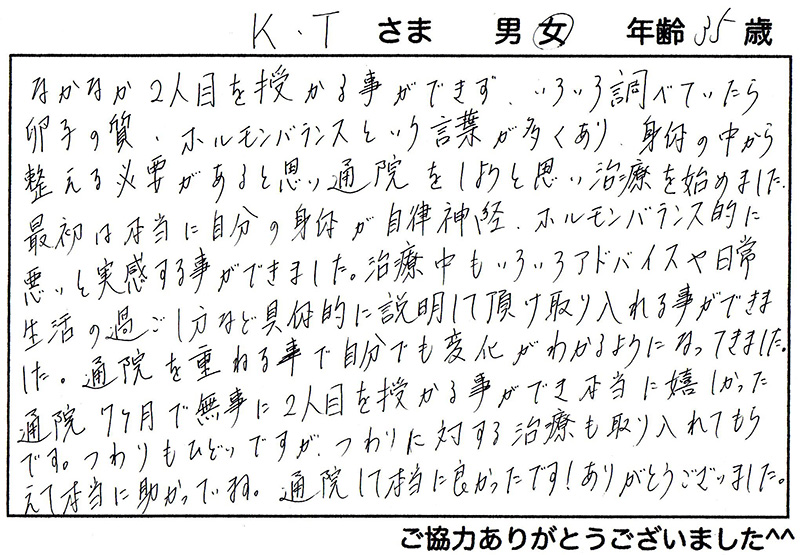 K.T さま 男 女 年齢 35 歳
なかなか2人目を授かる事ができず、いろいろ調べていたら
卵子の質、ホルモンバランスという言葉が多くあり、身体の中から
整える必要があると思い通院をしようと思い治療を始めました。
最初は本当に自分の身体が自律神経、ホルモンバランス的に
悪いと実感する事ができました。治療中もいろいろアドバイスや日常
生活の過ごし方など具体的に説明して頂け取り入れる事ができま
した。通院を重ねる事で自分でも変化がわかるようになってきました。
通院7ヶ月で無事に2人目を授かる事ができ本当に嬉しかった
です。つわりもひどいですが、つわりに対する治療も取り入れてもら
えて本当に助かっています。通院して本当に良かったです!ありがとうございました。
ご協力ありがとうございました^^